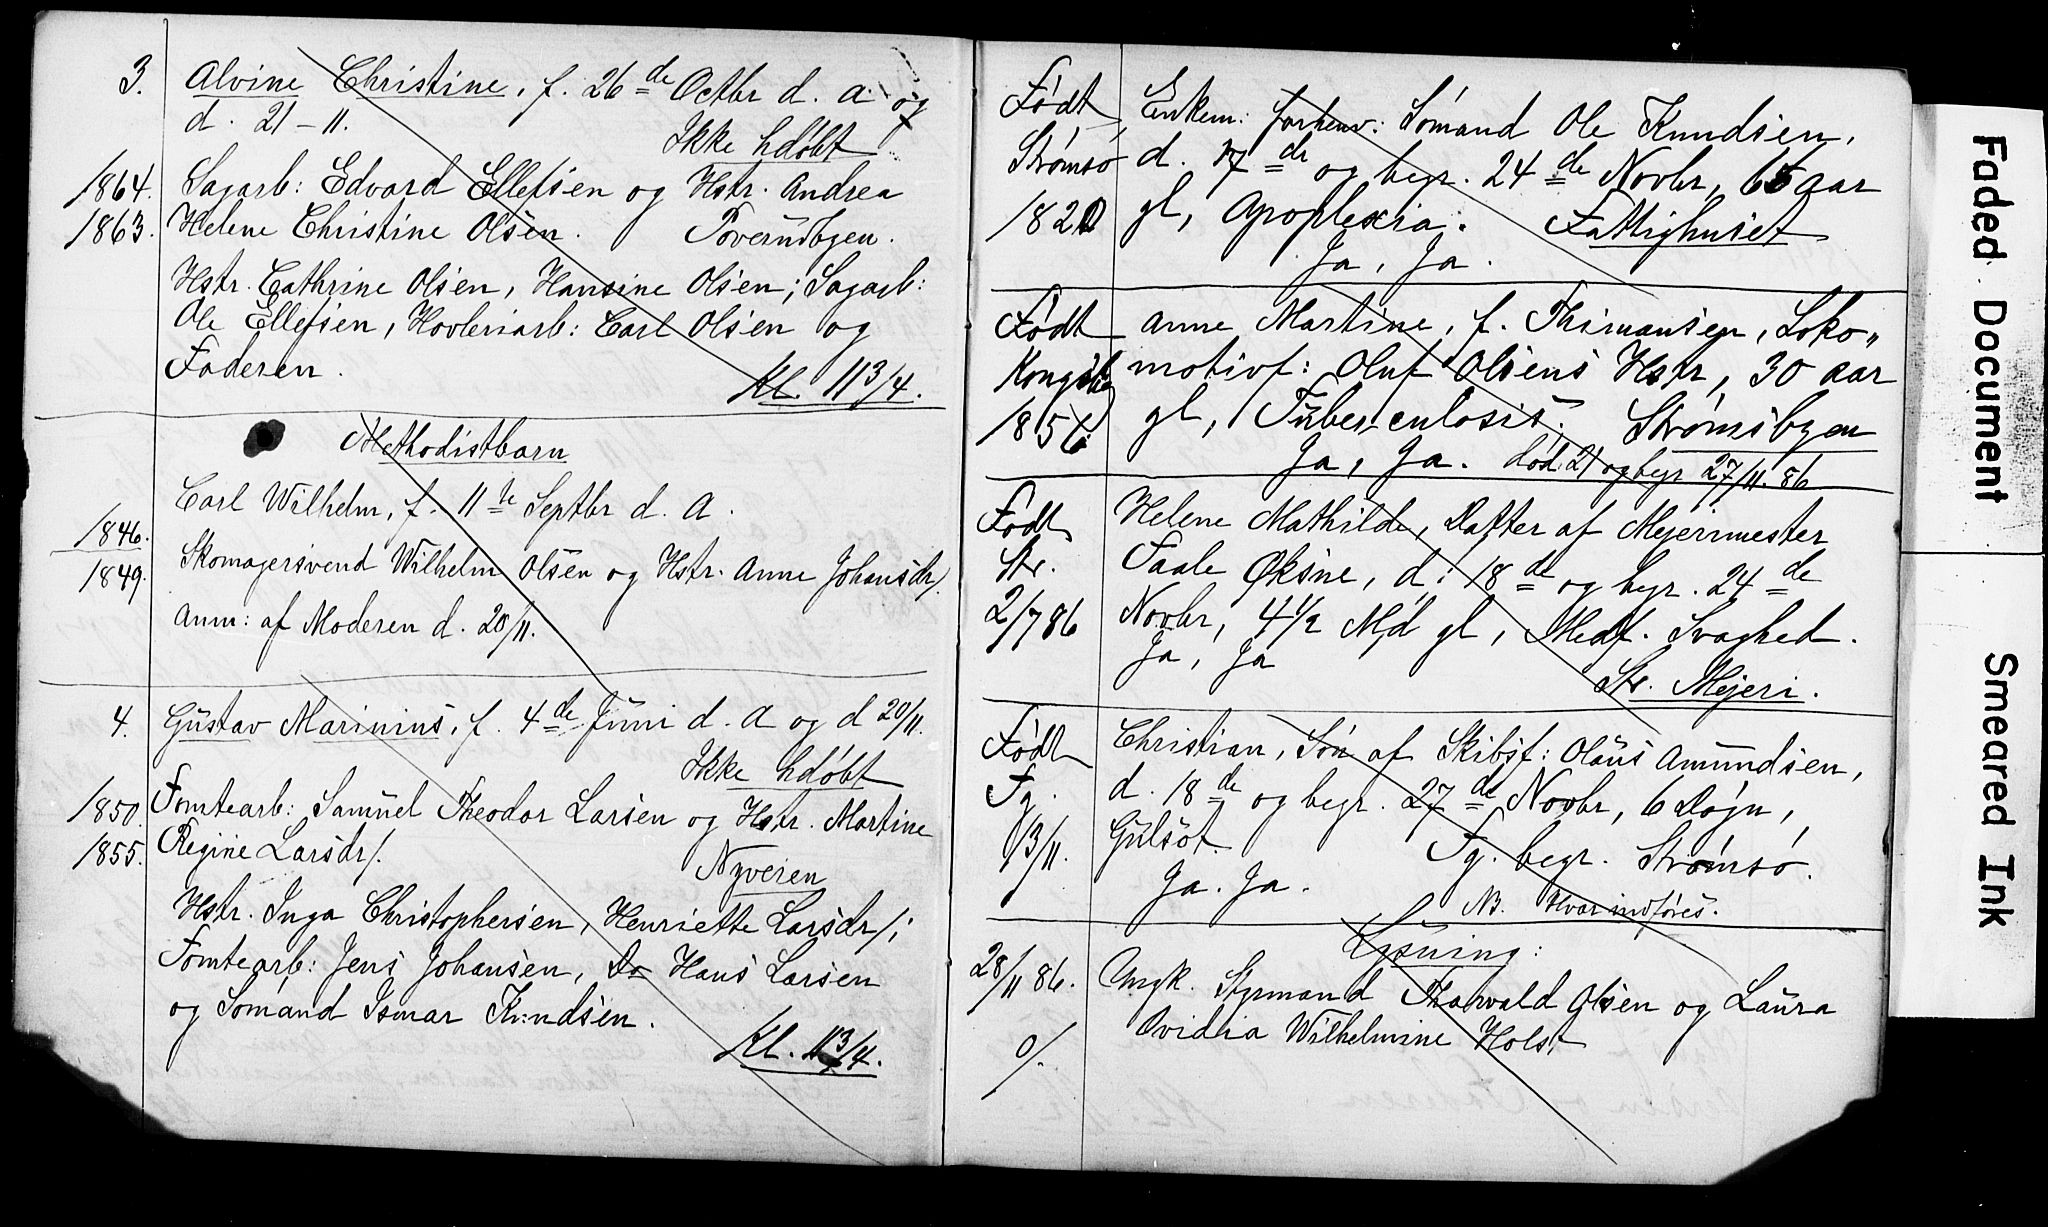 3. Alvine Christine, f. 26de Octbr d. a og
d. 21-11. Ikke hdøbt
1864. Sagarb: Edvard Ellefsen og Hstr. Andrea
1863. Helene Christine Olsen. Toverudbyen.
Hstr. Cathrine Olsen, Hansine Olsen; Sagarb:
Ole Ellefsen, Hovleriarb: Carl Olsen og
Faderen. Kl. 11 3/4.
Methodistbarn
Carl Wilhelm, f. 11te Septbr d. A.
1846.
1849. Skomagersvend Wilhelm Olsen og Hstr. Anne Johansdr/.
Anm: af Moderen d. 20/11.
4. Gustav Marinius, f. 4de Juni d. A og d 20/11.
Ikke hdøbt
1850. Tomtearb: Samuel Theodor Larsen og Hstr. Martine
1855. Regine Larsdr/. Nyveien
Hstr. Inga Christophersen, Henriette Larsdr/;
Tomtearb: Jens Johansen, Do Hans Larsen
og Sømand Ismar Knudsen.
Kl. 11 3/4.
Født Enkem: forhenv: Sømand Ole Knudsen,
Strømsø d. 17de og begr. 24de Novbr, 65 aar
1821 gl, Apoplexia. Fattighuset
Ja, Ja.
Født Anne Martine, f. Thimansen, Loko„
Kongsbg motivf: Oluf Olsens Hstr, 30 aar
1856 gl, Tuberculosis. Strømsbyen
Ja, Ja. død 21 og begr 27/11. 86
Født Helene Mathilde, Datter af Mejerimester
Str. Faale Øksne, d: 18de og begr. 24de
2/7 86 Novbr, 4 1/2 Md gl, Medf. Svaghed.
Ja, Ja
Str. Mejeri.
Født Christian, Søn af Skibsf: Olaus Amundsen,
Tg. d. 18de og begr. 27de Novbr, 6 Døgn,
13/11. Gulsot. Tg. begr. Strømsø.
Ja. Ja.
NB. Hvor indføres.
Lysning:
28/11 86. Ungk. Styrmand Thorvald Olsen og Laura
0/. Ovidia Wilhelmine Holst
Faded Document
Smeared Ink